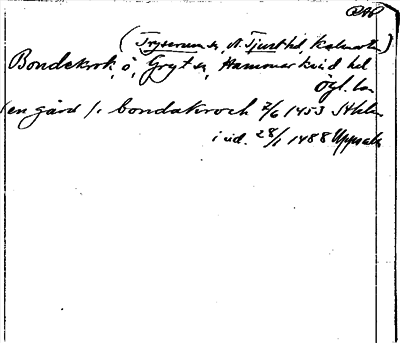 (Tryserum sn, N. Tjust hd, Kalmar län)
Bondekrok, ö, Gryt sn, Hammarkind hd
Ögl. län
(en gård) i bondakroch 2/6 1453 Sthlm
i ud. 28/1 1488 Uppsala